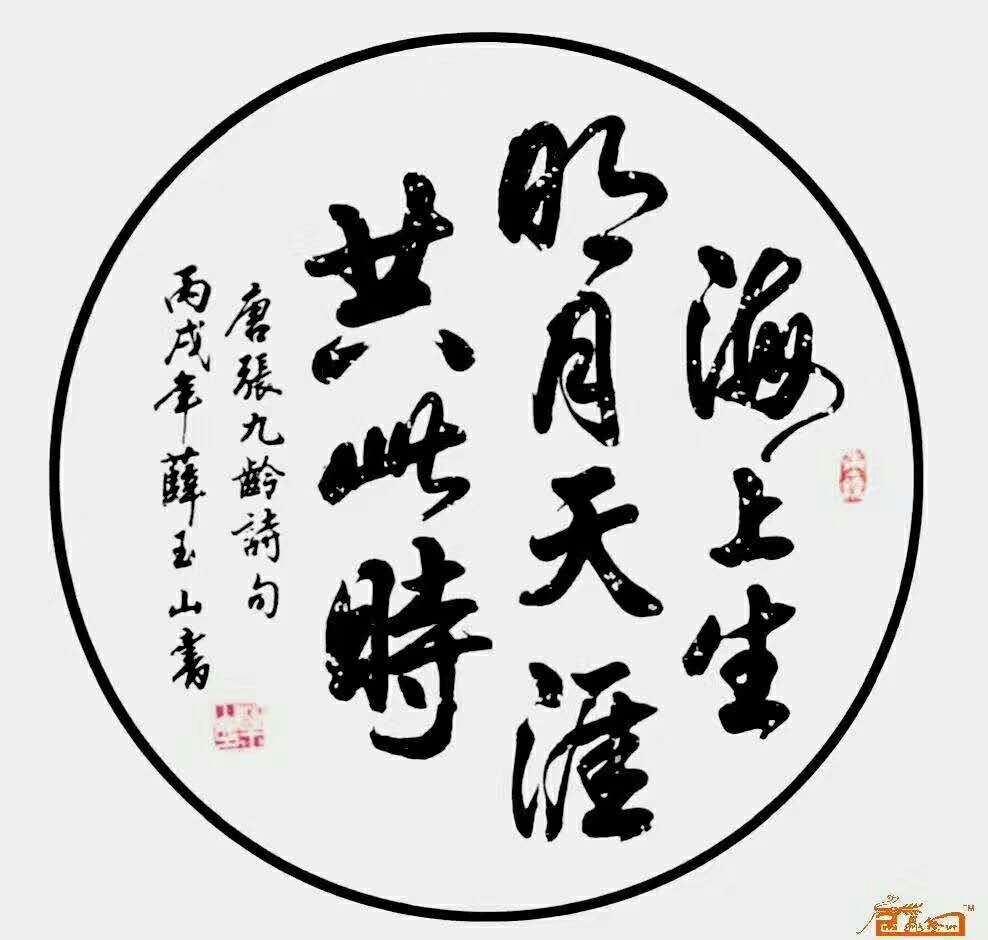 海上生
明月天涯
共此時
唐張九齡詩句
丙戌年薛玉山書